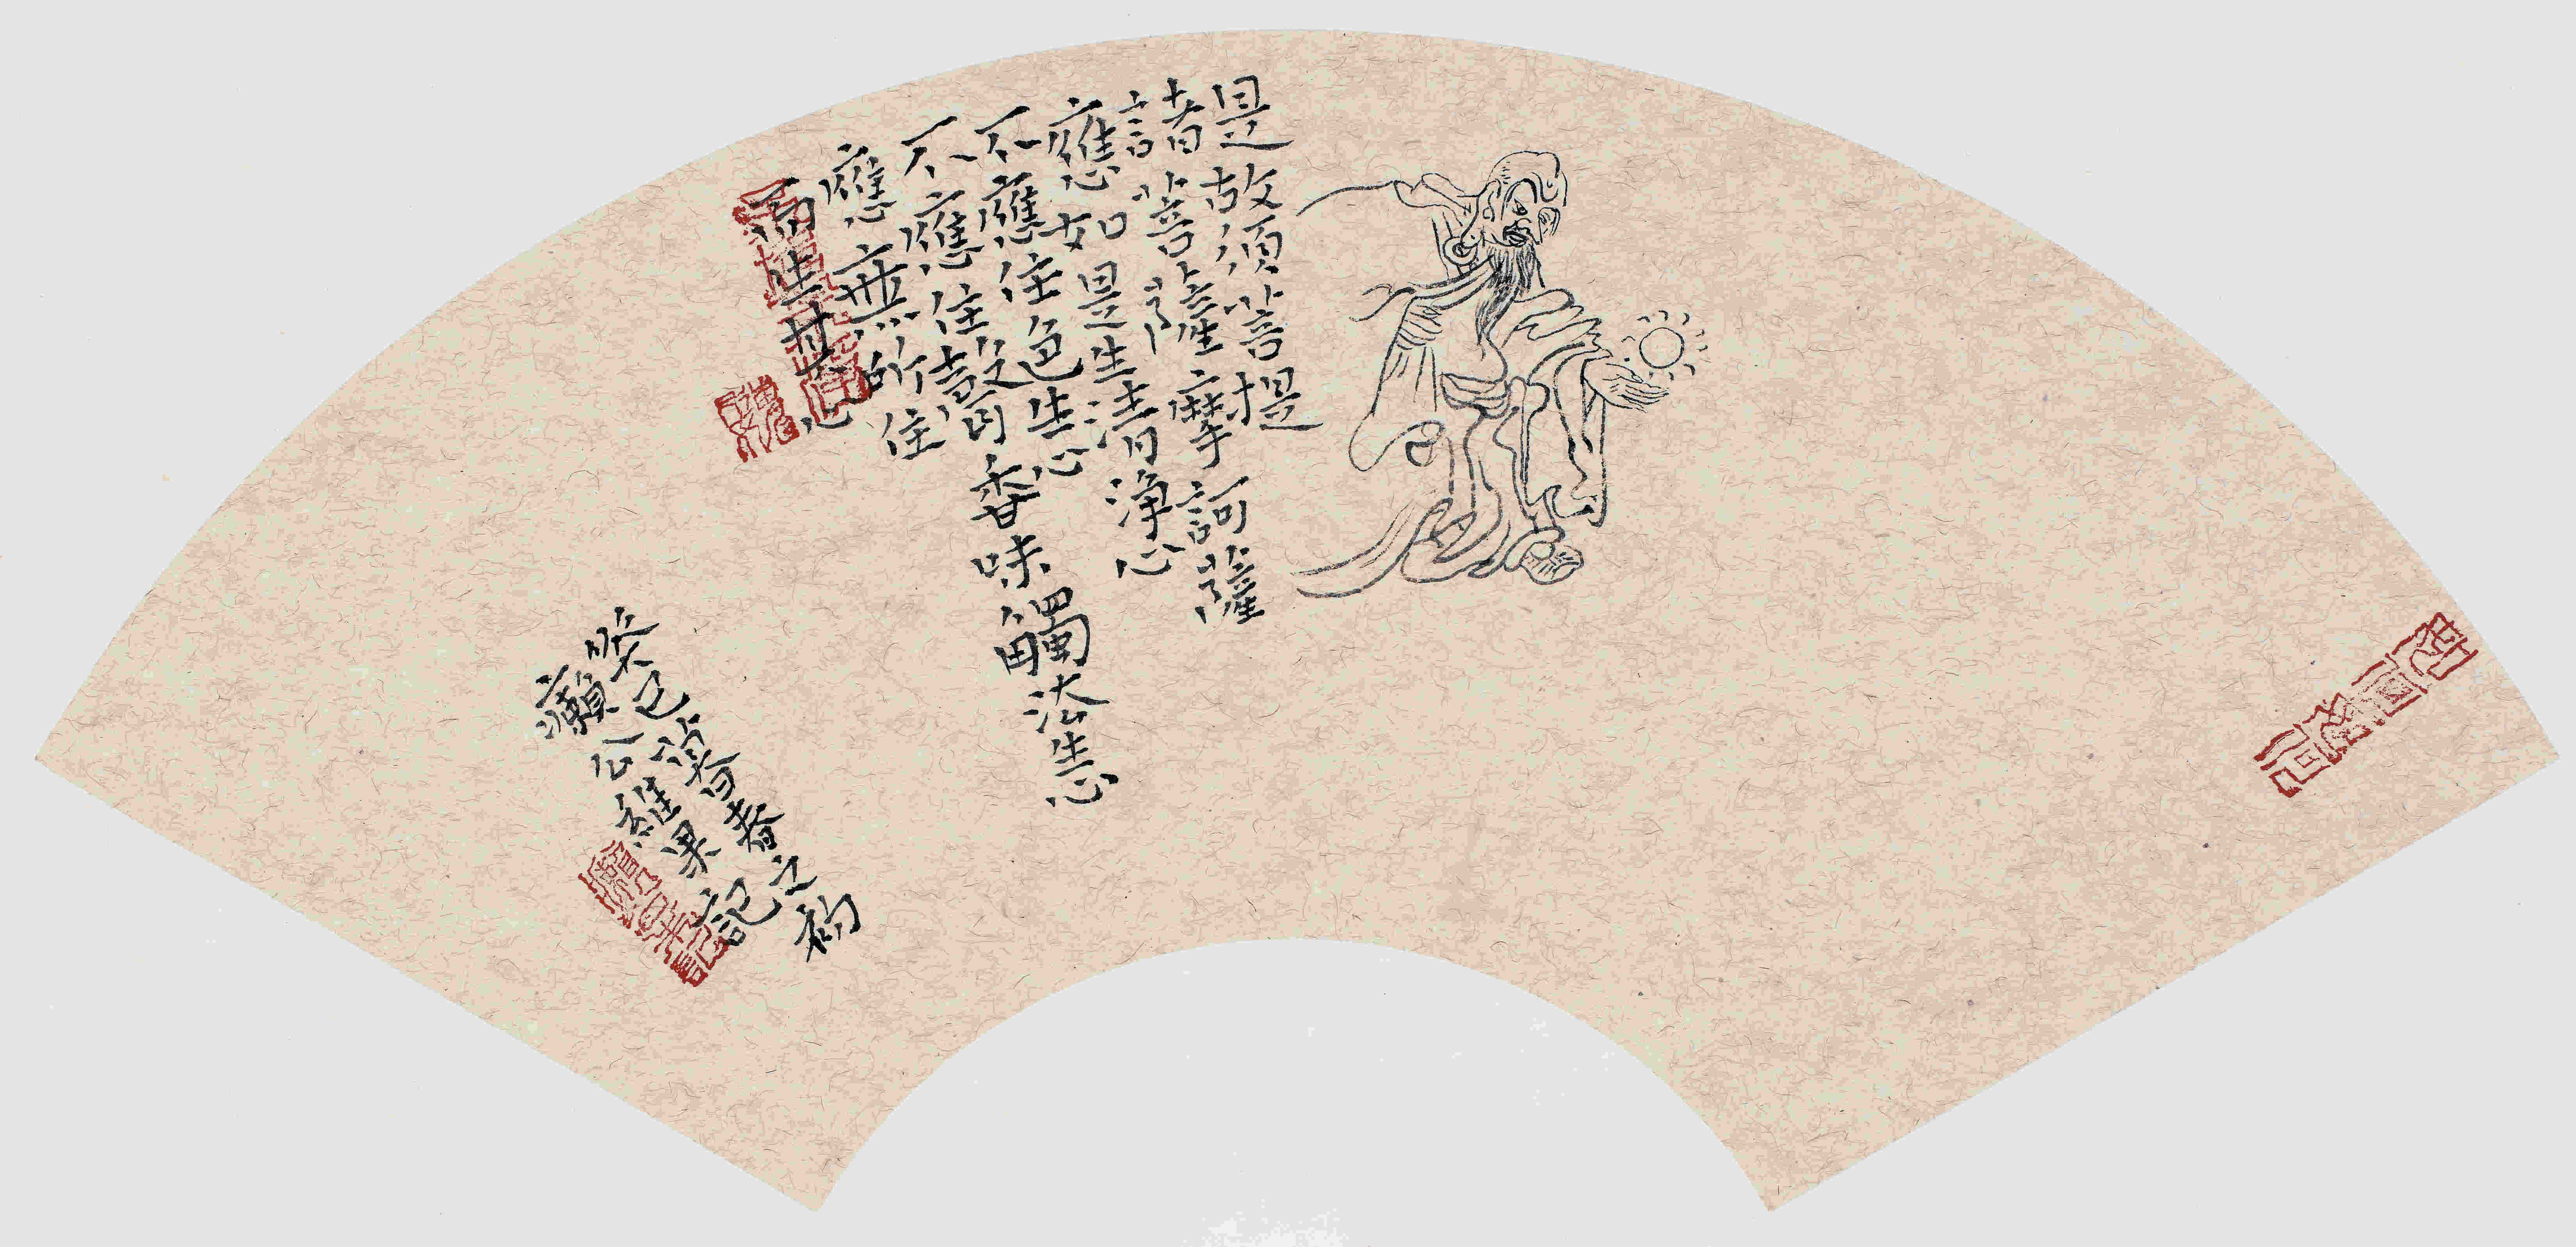 是故須菩提
諸菩薩摩訶薩
應如是生清淨心
不應住色生心
不應住聲香味觸法生心
應無所住
而生其心
癸巳春之初
癩公維果記